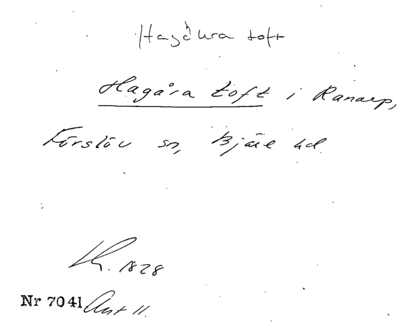 Hagåra toft
Hagåra toft i Ranarp,
Förslöv sn, Bjäre hd.
1828
Nr 7041 Ant 11.